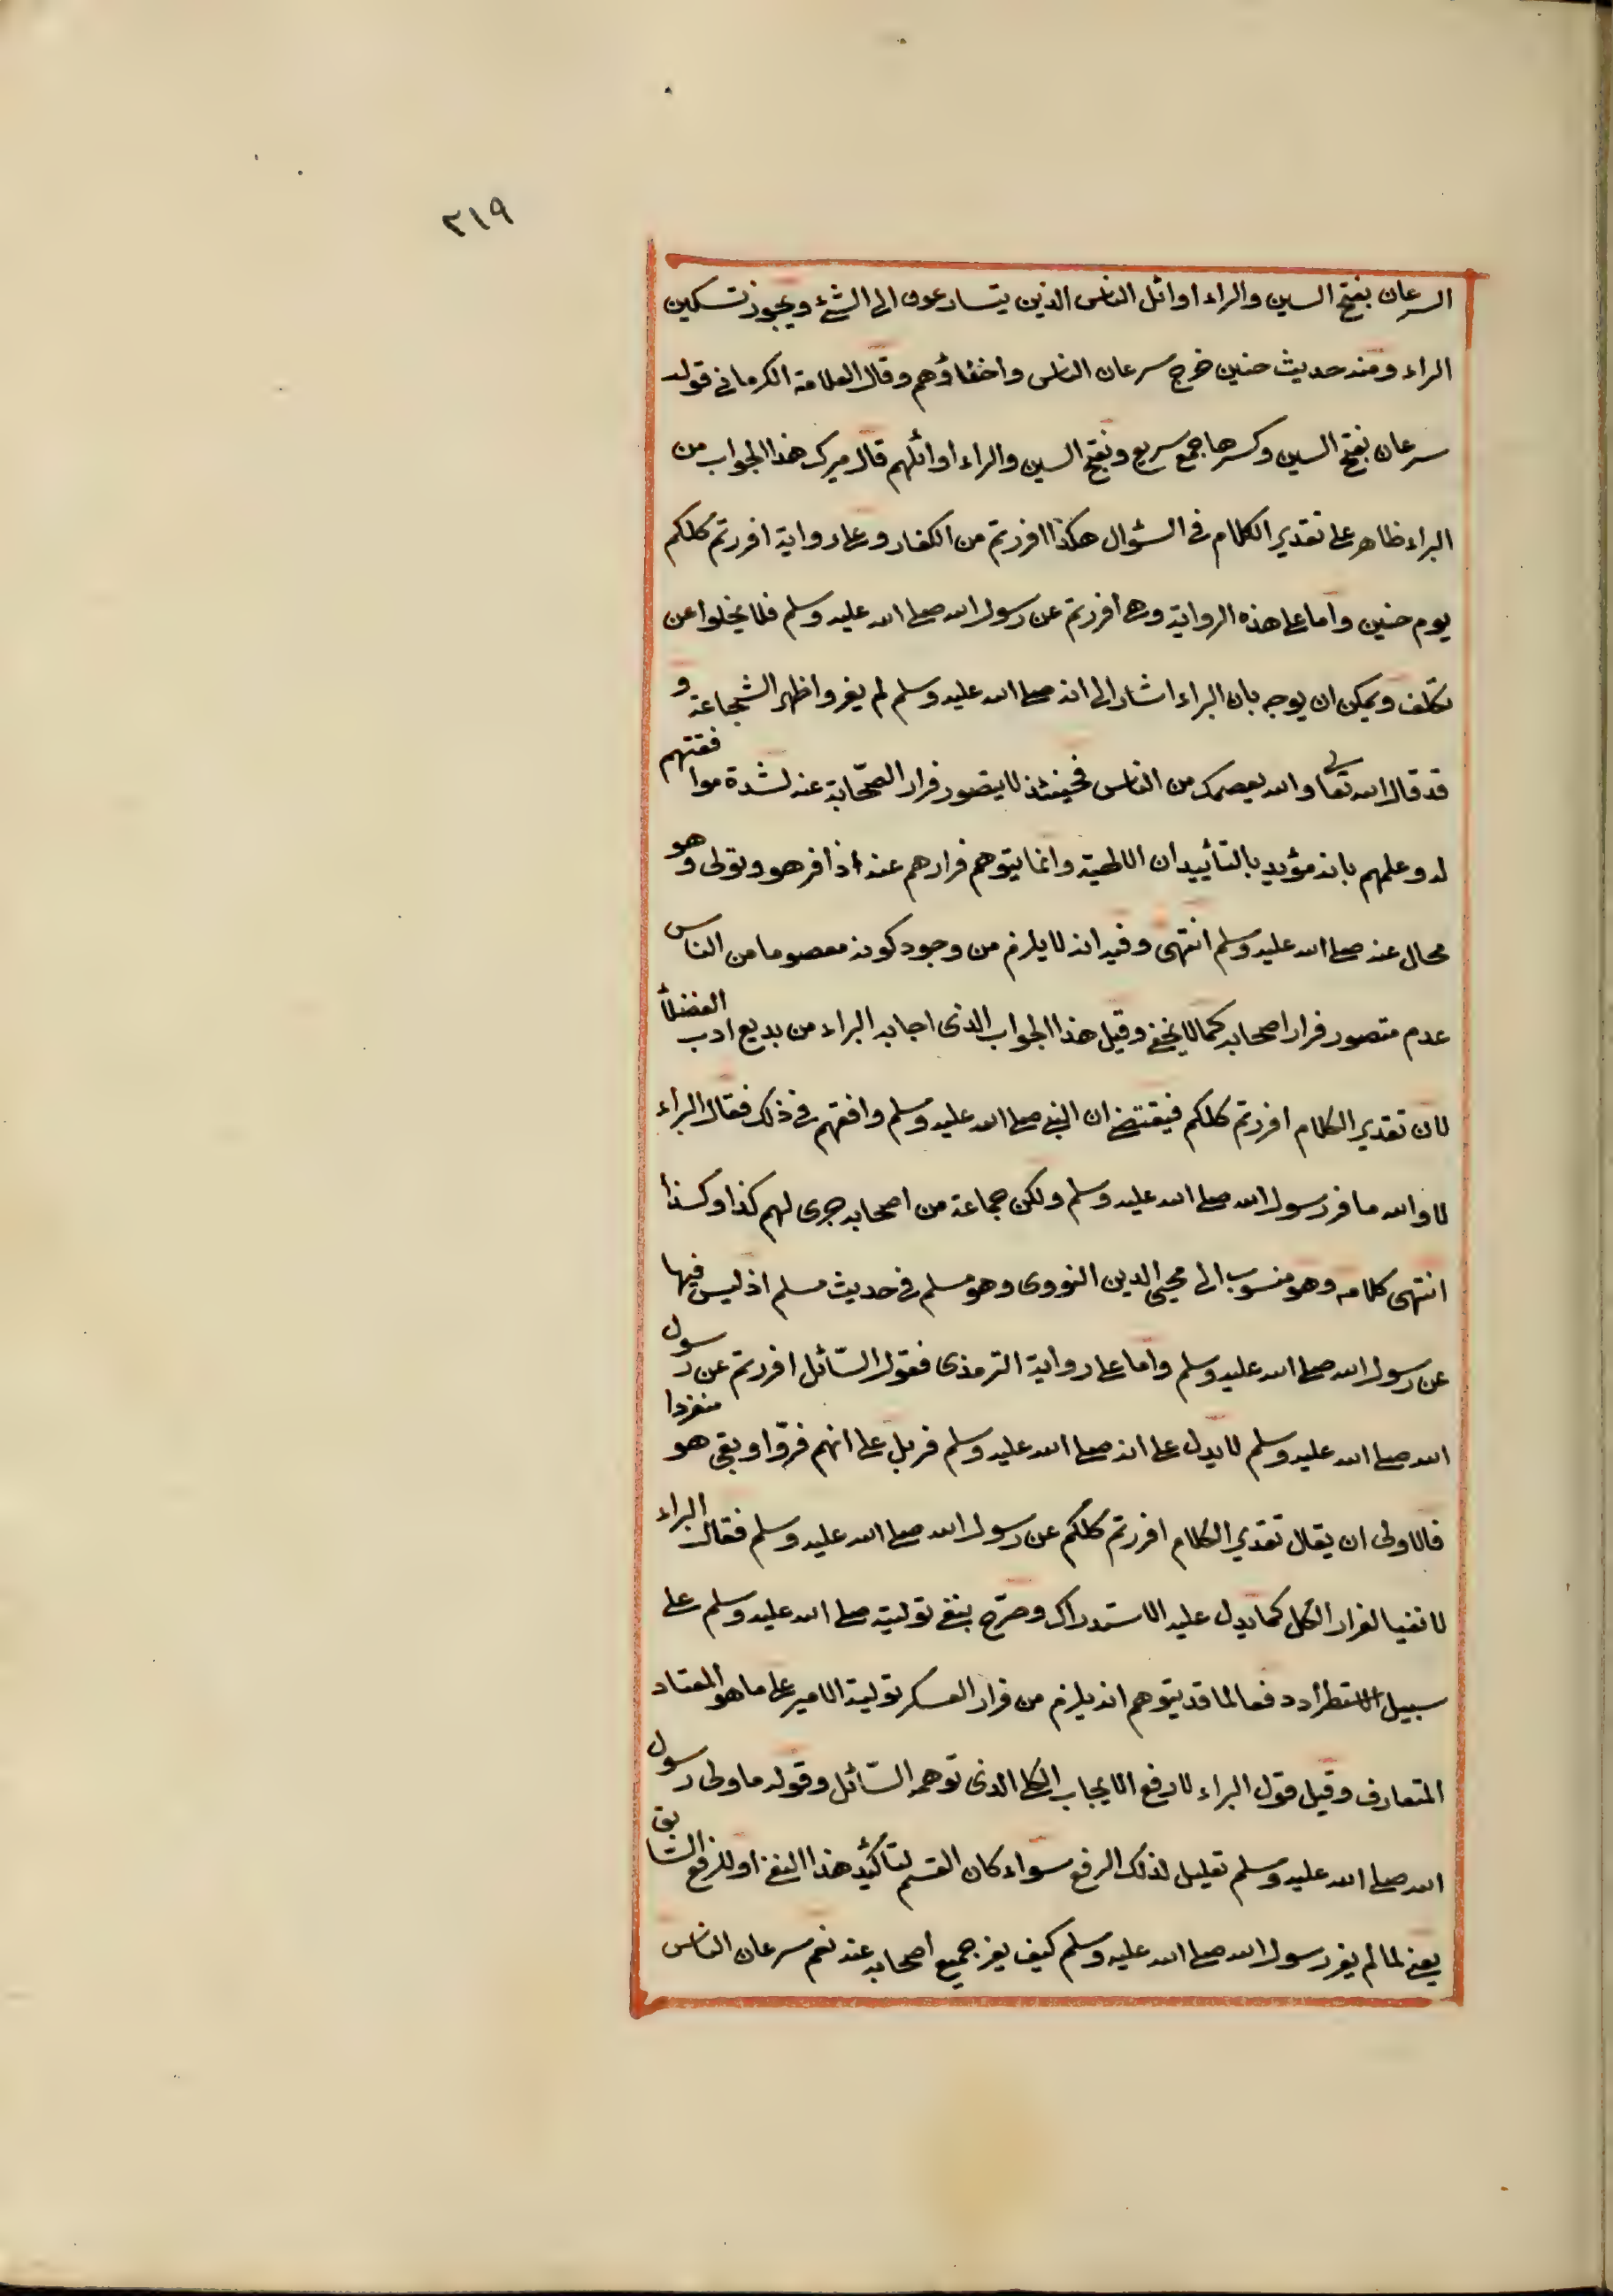 ٢١٩
السرعان بفتح السين والراء اوائل الناس الذين يتسارعون الى الشئ ويجوز تسكين
الراء ومنه حديث حنين خرج سرعان الناس واخفاؤهم وقال العلامة الكرماني قوله
سرعان بفتح السين وكسرها جمع سريع وبفتح السين والراء اوائلهم قال ميرك هذا الجواب من
البراء ظاهر على تقدير الكلام في السؤال هكذا افررتم من الكفار وعلى رواية افررتم كلكم
يوم حنين واما على هذه الرواية وهي افررتم عن رسول الله صلى الله عليه وسلم فلا يخلوا عن
تكلف ويمكن ان يوجه بان البراء اشار الى انه صلى الله عليه وسلم لم يفر واظهر الشجاعة و
قد قال الله تعالى والله يعصمك من الناس فحينئذ لا يتصور فرار الصحّابة عنه لشدة موافقتهم
له وعلمهم بانه مؤيد بالتأييدان اللطهية وانما يتوهم فرارهم عنه اذا فر هو وتولى وهو
محال عنه صلى الله عليه وسلم انتهى وفيه انه لا يلزم من وجود كونه معصوما من الناس
عدم متصور فرار اصحابه كما لا يخفى وقيل هذا الجواب الذى اجابه البراء من بديع ادب الفضلأ
لان تقدير الكلام افررتم كلكم فيقتضى ان النبي صلى الله عليه وسلم وافقهم في ذلك فقال البراء
لا والله ما فر رسول الله صلى الله عليه وسلم ولكن جماعة من اصحابه جرى لهم كذا وكذا
انتهى كلامه وهو منسوب الى محيى الدين النووى وهو مسلم في حديث مسلم اذ ليس فيها
عن رسول الله صلى الله عليه وسلم واما على رواية الترمذى فقول السّائل افررتم عن رسول
الله صلى الله عليه وسلم لا يدل على انه صلى الله عليه وسلم فر بل على انهم فرّوا وبقي هو منفردا
فالاولى ان يقال تقدير الكلام افررتم كلكم عن رسول الله صلى الله عليه وسلم فقال البراء
لا نفيا لفرار الكل كما يدل عليه الاستدراك وصرّح بنفي توليته صلى الله عليه وسلم على
سبيل الاستطراد دفعا لما قد يتوهم انه يلزم من فرار العسكر تولية الامير على ما هو المعتاد
المتعارف وقيل قول البراء لا رفع الايجاب الكلي الذى توهمه السّائل وقوله ما ولى رسول
الله صلى الله عليه وسلم تعليل لذلك الرفع سواء كان القسم لتأكيد هذا النفي او للرفع السّابق
يعني لما لم يفر رسول الله صلى الله عليه وسلم كيف يفر جميع اصحابه عنه نعم سرعان الناس